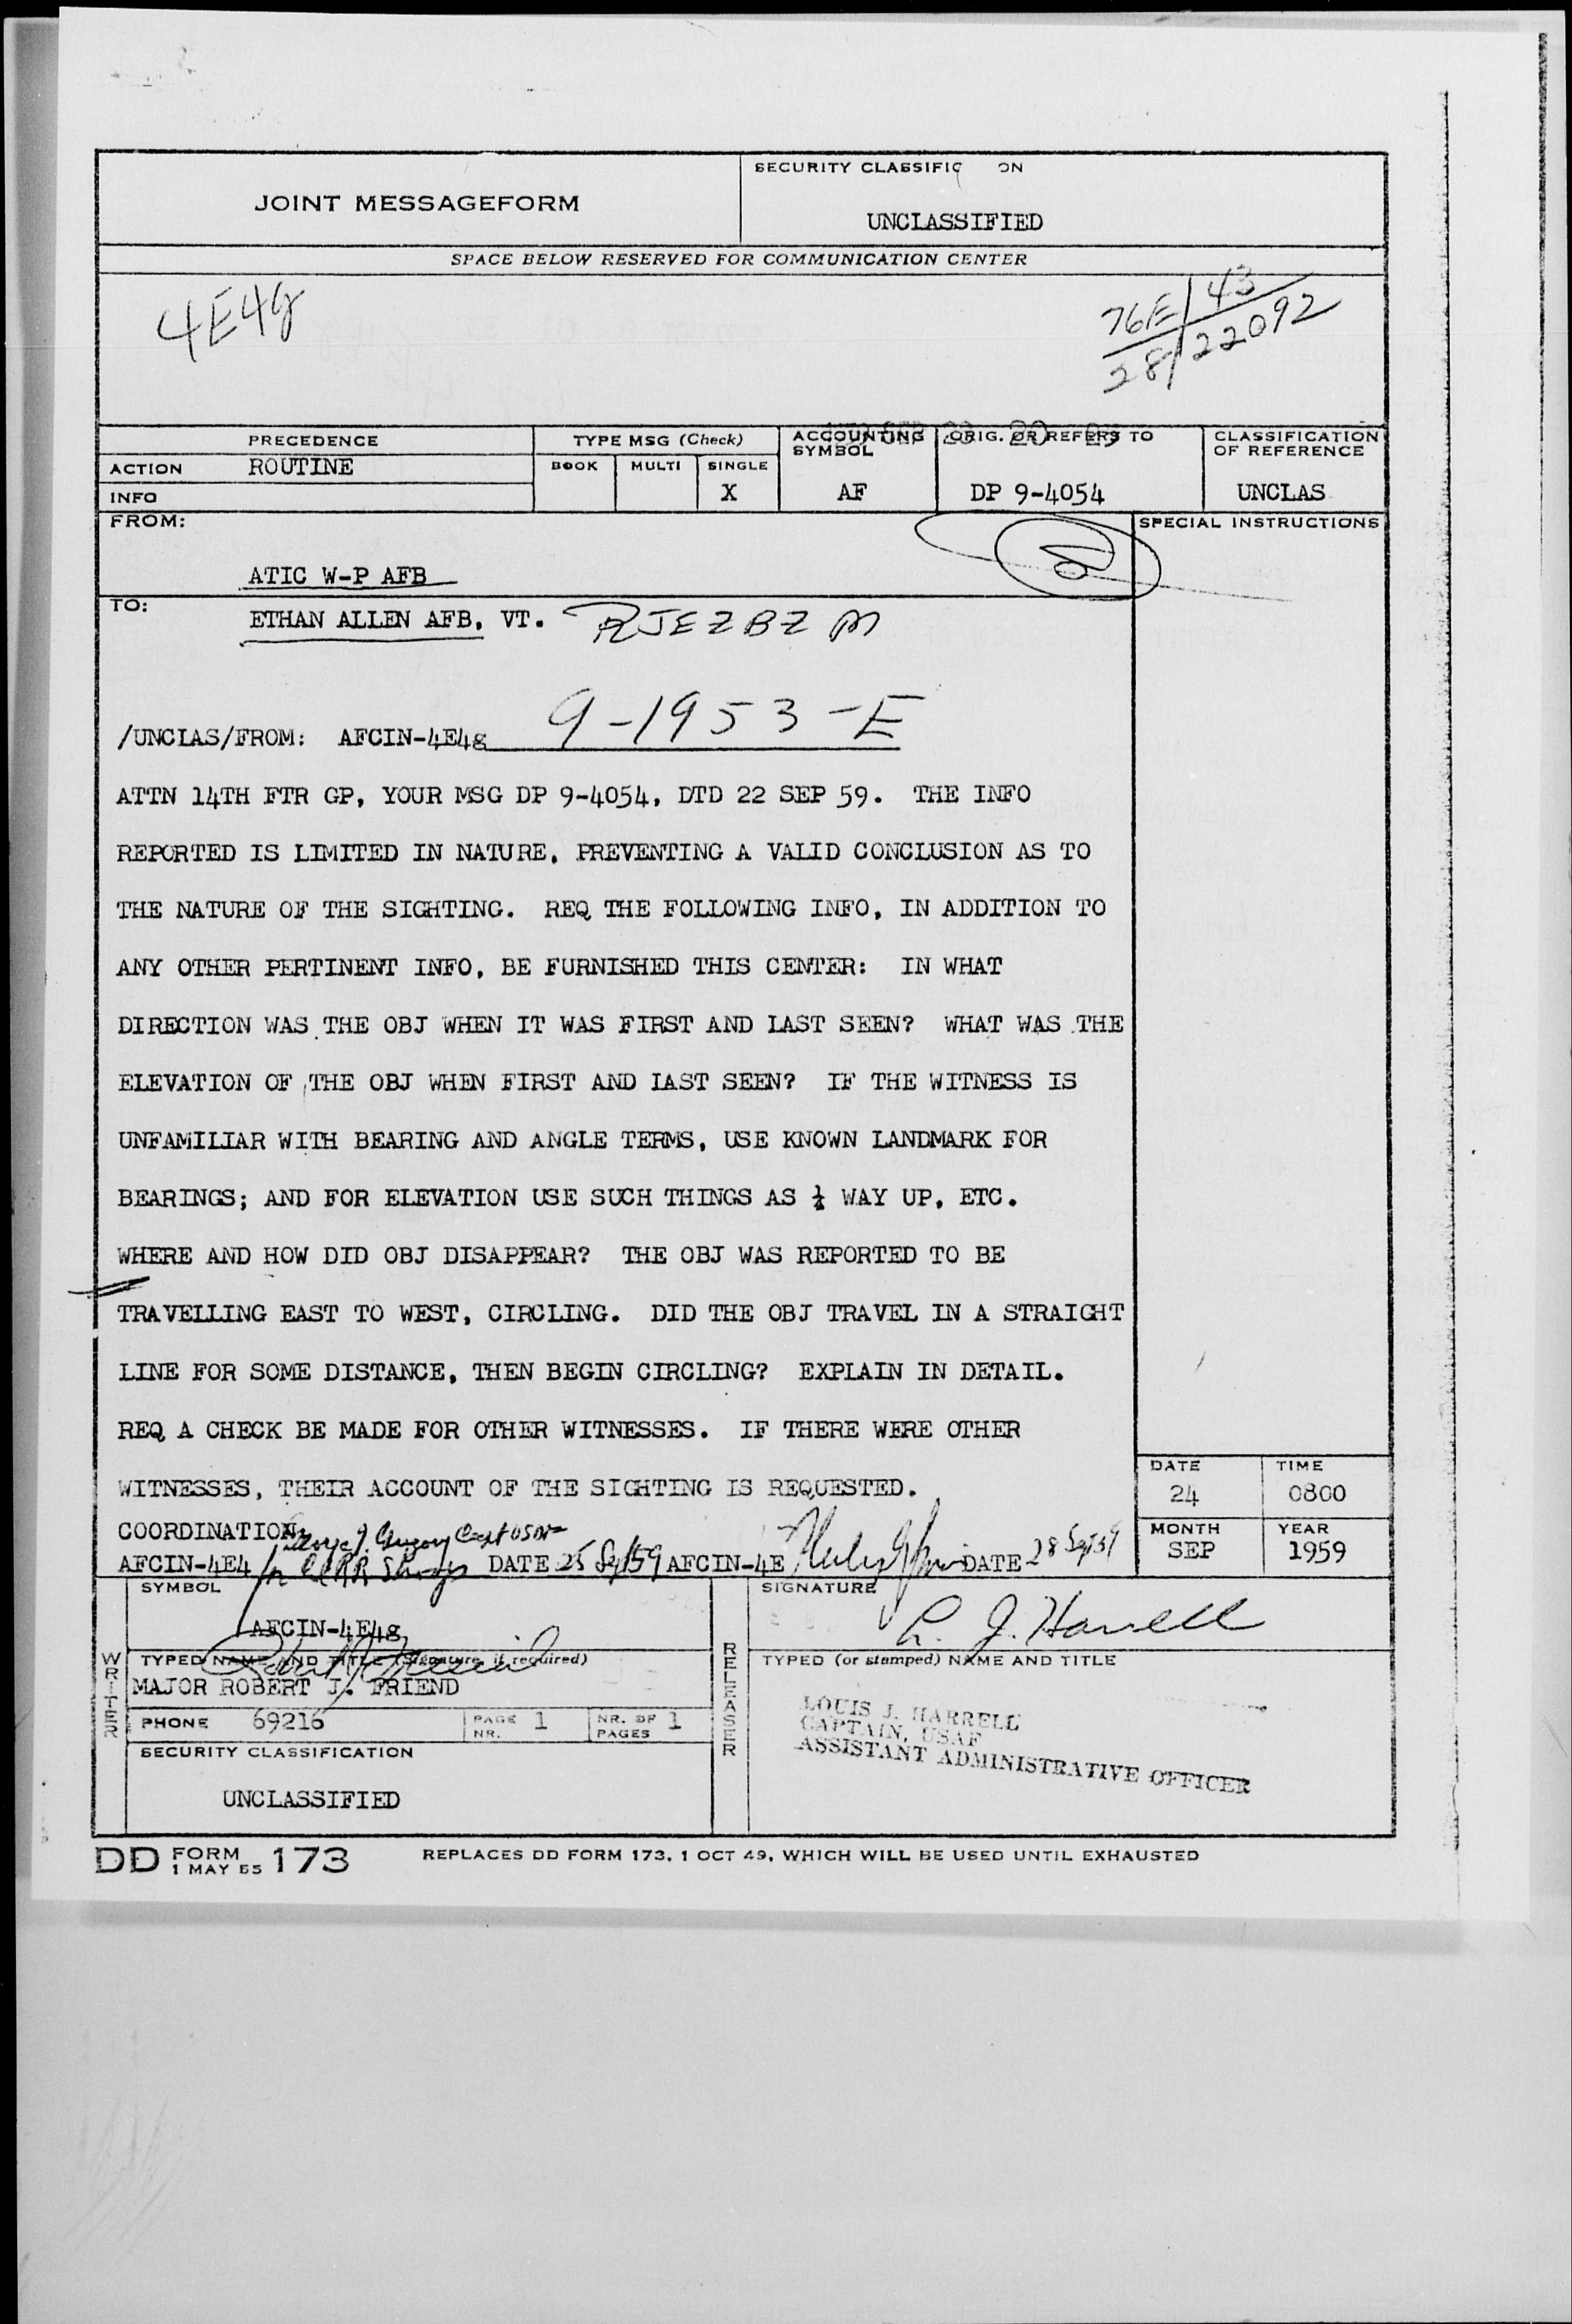 JOINT MESSAGEFORM
SECURITY CLASSIFIC ON
UNCLASSIFIED
SPACE BELOW RESERVED FOR COMMUNICATION CENTER
4E4g
76E/43
28/22092
PRECEDENCE
TYPE MSG (Check)
ACCOUNTING SYMBOL
ORIG. OR REFERS TO
CLASSIFICATION OF REFERENCE
ACTION ROUTINE
BOOK MULTI SINGLE
INFO
X
AF
DP 9-4054
UNCLAS
FROM:
SPECIAL INSTRUCTIONS
ATIC W-P AFB
TO:
ETHAN ALLEN AFB, VT. RJEZBZ M
/UNCLAS/FROM: AFCIN-4E4g 9-1953-E
ATTN 14TH FTR GP, YOUR MSG DP 9-4054, DTD 22 SEP 59. THE INFO
REPORTED IS LIMITED IN NATURE, PREVENTING A VALID CONCLUSION AS TO
THE NATURE OF THE SIGHTING. REQ THE FOLLOWING INFO, IN ADDITION TO
ANY OTHER PERTINENT INFO, BE FURNISHED THIS CENTER: IN WHAT
DIRECTION WAS THE OBJ WHEN IT WAS FIRST AND LAST SEEN? WHAT WAS THE
ELEVATION OF THE OBJ WHEN FIRST AND LAST SEEN? IF THE WITNESS IS
UNFAMILIAR WITH BEARING AND ANGLE TERMS, USE KNOWN LANDMARK FOR
BEARINGS; AND FOR ELEVATION USE SUCH THINGS AS WAY UP, ETC.
WHERE AND HOW DID OBJ DISAPPEAR? THE OBJ WAS REPORTED TO BE
TRAVELLING EAST TO WEST, CIRCLING. DID THE OBJ TRAVEL IN A STRAIGHT
LINE FOR SOME DISTANCE, THEN BEGIN CIRCLING? EXPLAIN IN DETAIL.
REQ A CHECK BE MADE FOR OTHER WITNESSES. IF THERE WERE OTHER
WITNESSES, THEIR ACCOUNT OF THE SIGHTING IS REQUESTED.
DATE TIME
24 0800
COORDINATION:
AFCIN-4E4 DATE 25 Sep 59 AFCIN-4E DATE 28 Sep 59
MONTH YEAR
SEP 1959
SYMBOL
AFCIN-4E4g
SIGNATURE
L. J. Harrell
WRITER
TYPED NAME AND TITLE (Signature, if required)
MAJOR ROBERT J. FRIEND
RELEASER
TYPED (or stamped) NAME AND TITLE
LOUIS J. HARRELL
CAPTAIN, USAF
ASSISTANT ADMINISTRATIVE OFFICER
PHONE 69216
PAGE NR. 1
NR. OF PAGES 1
SECURITY CLASSIFICATION
UNCLASSIFIED
DD FORM 1 MAY 55 173
REPLACES DD FORM 173, 1 OCT 49, WHICH WILL BE USED UNTIL EXHAUSTED